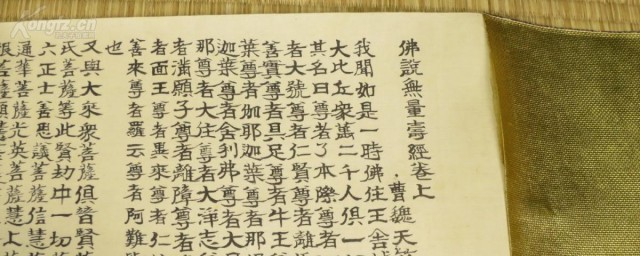 佛說無量壽經卷上
曹魏天
我聞如是一時佛住王舍
大比丘眾萬二千人俱一
其名曰尊者了本際尊者
者大號尊者仁賢尊者離
善實尊者具足尊者牛王
葉尊者伽耶迦葉尊者那
迦葉尊者舍利弗尊者大
那尊者大住尊者大淨志
者滿願子尊者離障尊者
者面王尊者異乘尊者仁
善來尊者羅云尊者阿難
也
又與大眾菩薩俱普賢
氏菩薩等此賢劫中一切
六正士善思議菩薩信慧
通華菩薩光英菩薩慧上
菩薩願